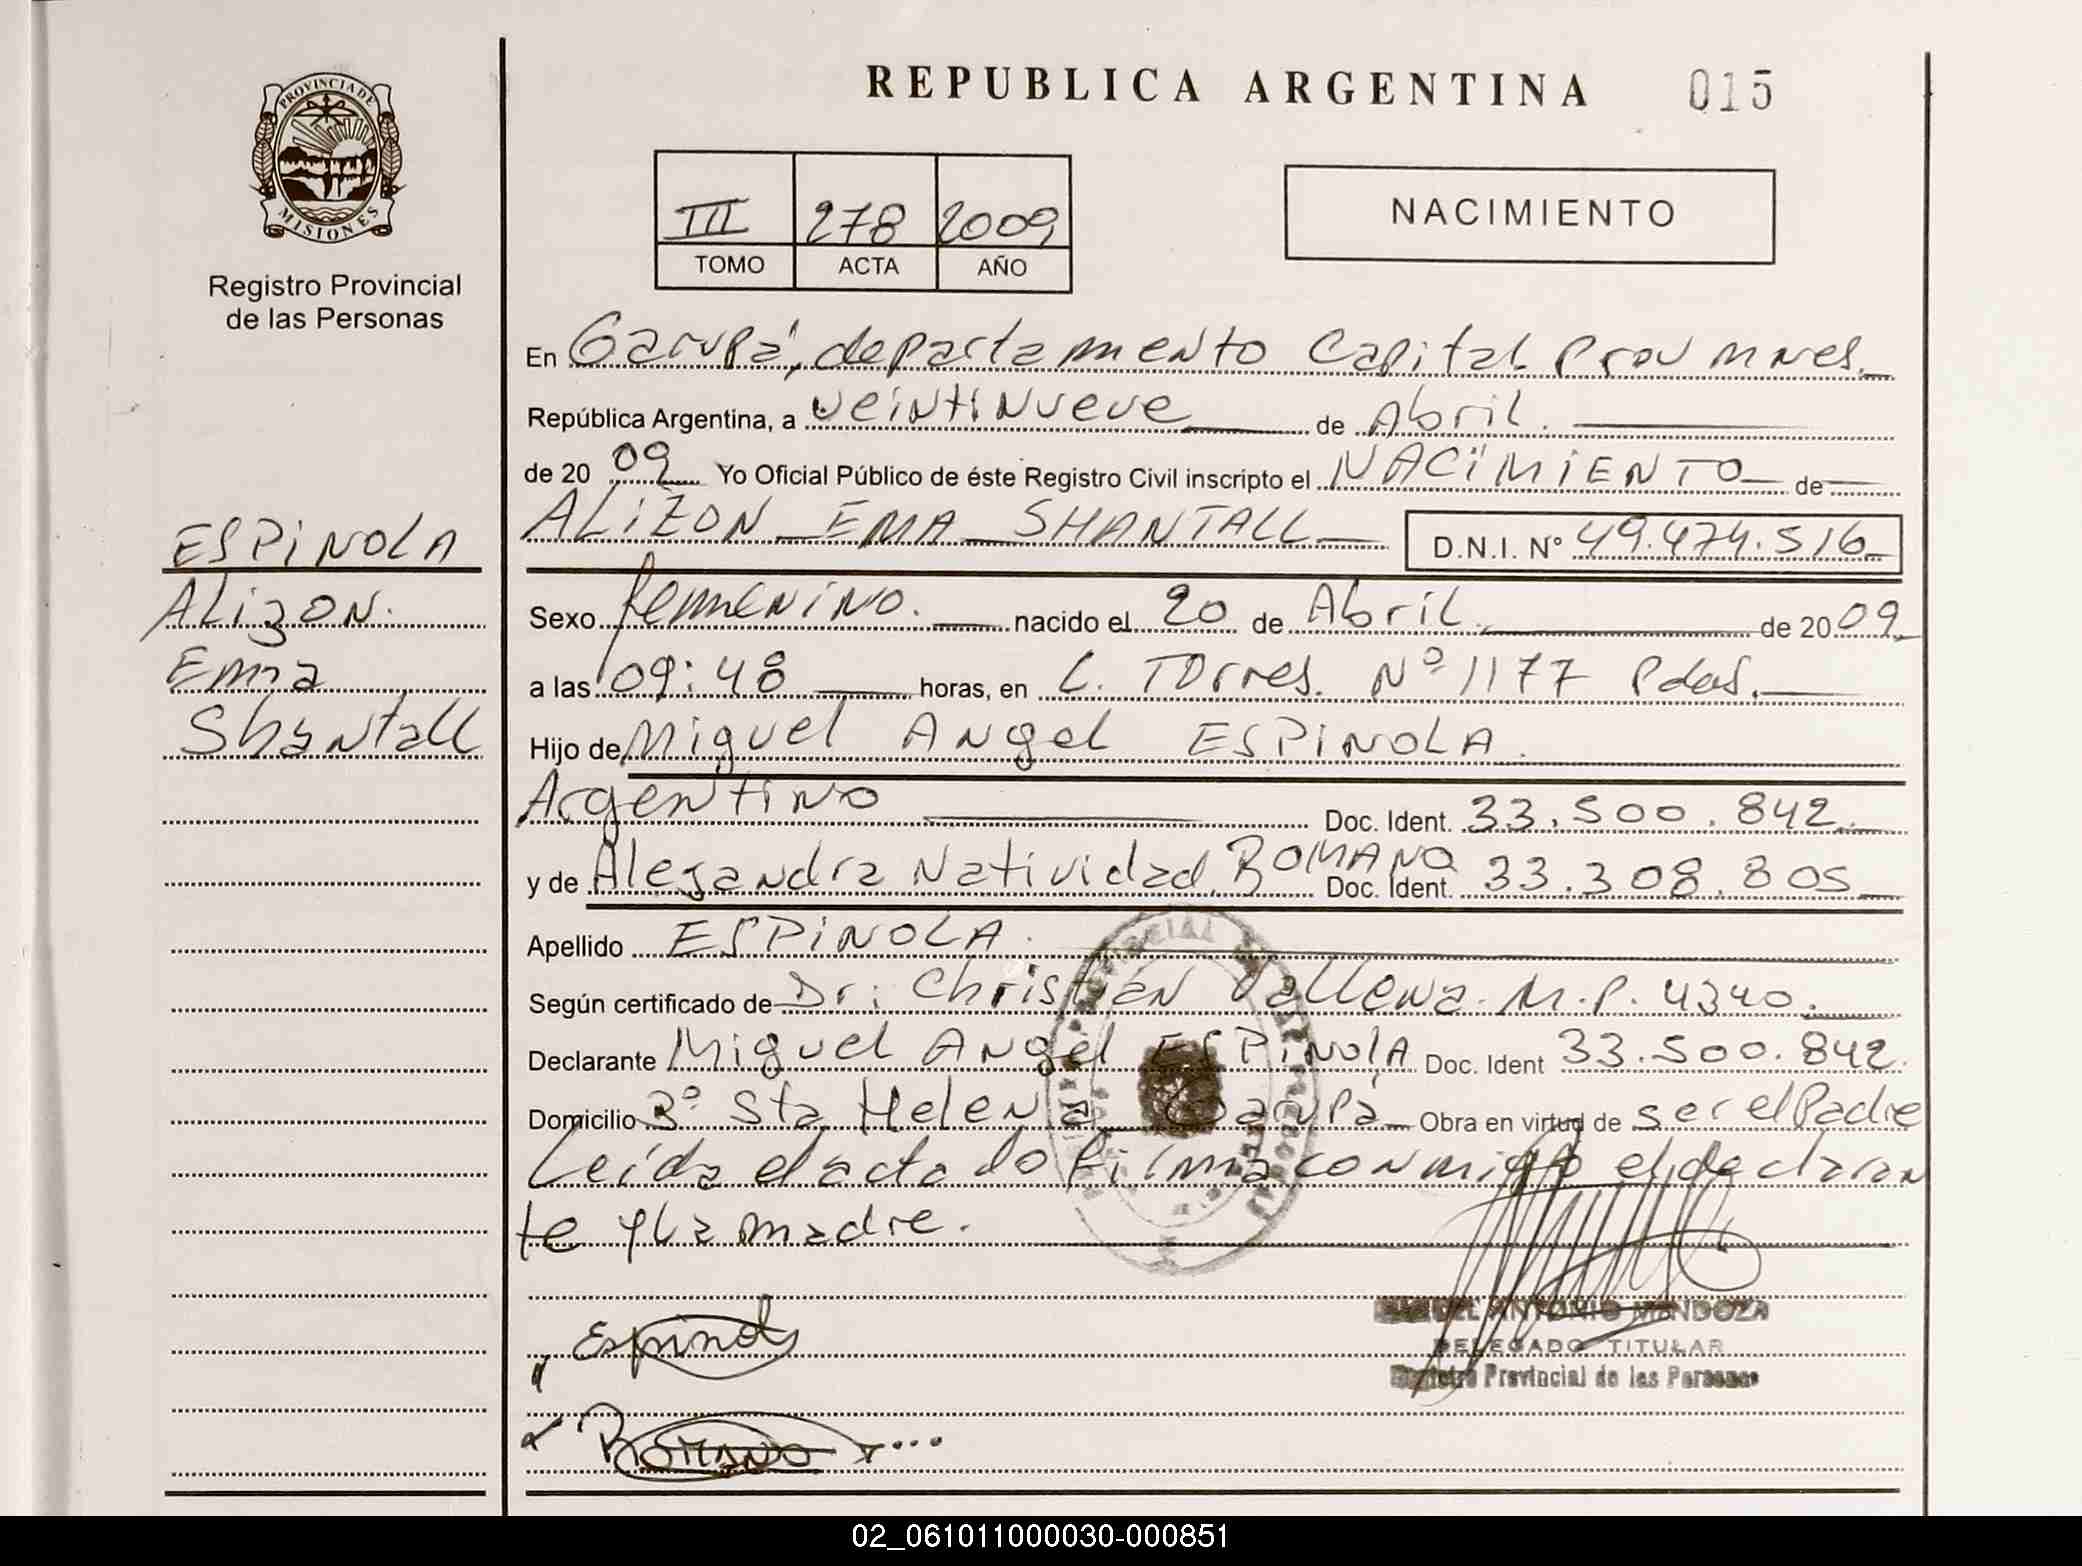 PROVINCIA DE
MISIONES
Registro Provincial
de las Personas
ESPINOLA
Alizon.
Ema
Shantall
REPUBLICA ARGENTINA 015
III 278 2009
TOMO ACTA AÑO
NACIMIENTO
En Garupá, departamento Capital Prov Mnes.
República Argentina, a veintinueve de Abril.
de 20 09 Yo Oficial Público de éste Registro Civil inscripto el NACIMIENTO de
ALIZON EMA SHANTALL D.N.I. Nº 49.474.516
Sexo femenino. nacido el 20 de Abril de 20 09
a las 09:48 horas, en C. Torres. Nº 1177 Pdas.
Hijo de Miguel Angel ESPINOLA.
Argentino Doc. Ident. 33.500.842.
y de Alejandra Natividad ROMANO Doc. Ident. 33.308.805
Apellido ESPINOLA.
Según certificado de Dr: Christian M.P. 4340.
Declarante Miguel Angel ESPINOLA Doc. Ident 33.500.842.
Domicilio Bº Sta Helena Garupá Obra en virtud de ser el Padre
Leída el acta lo firma conmigo el declaran
te y la madre.
Espinola
ROMANO
ANTONIO MENDOZA
DELEGADO TITULAR
Registro Provincial de las Personas
02_061011000030-000851